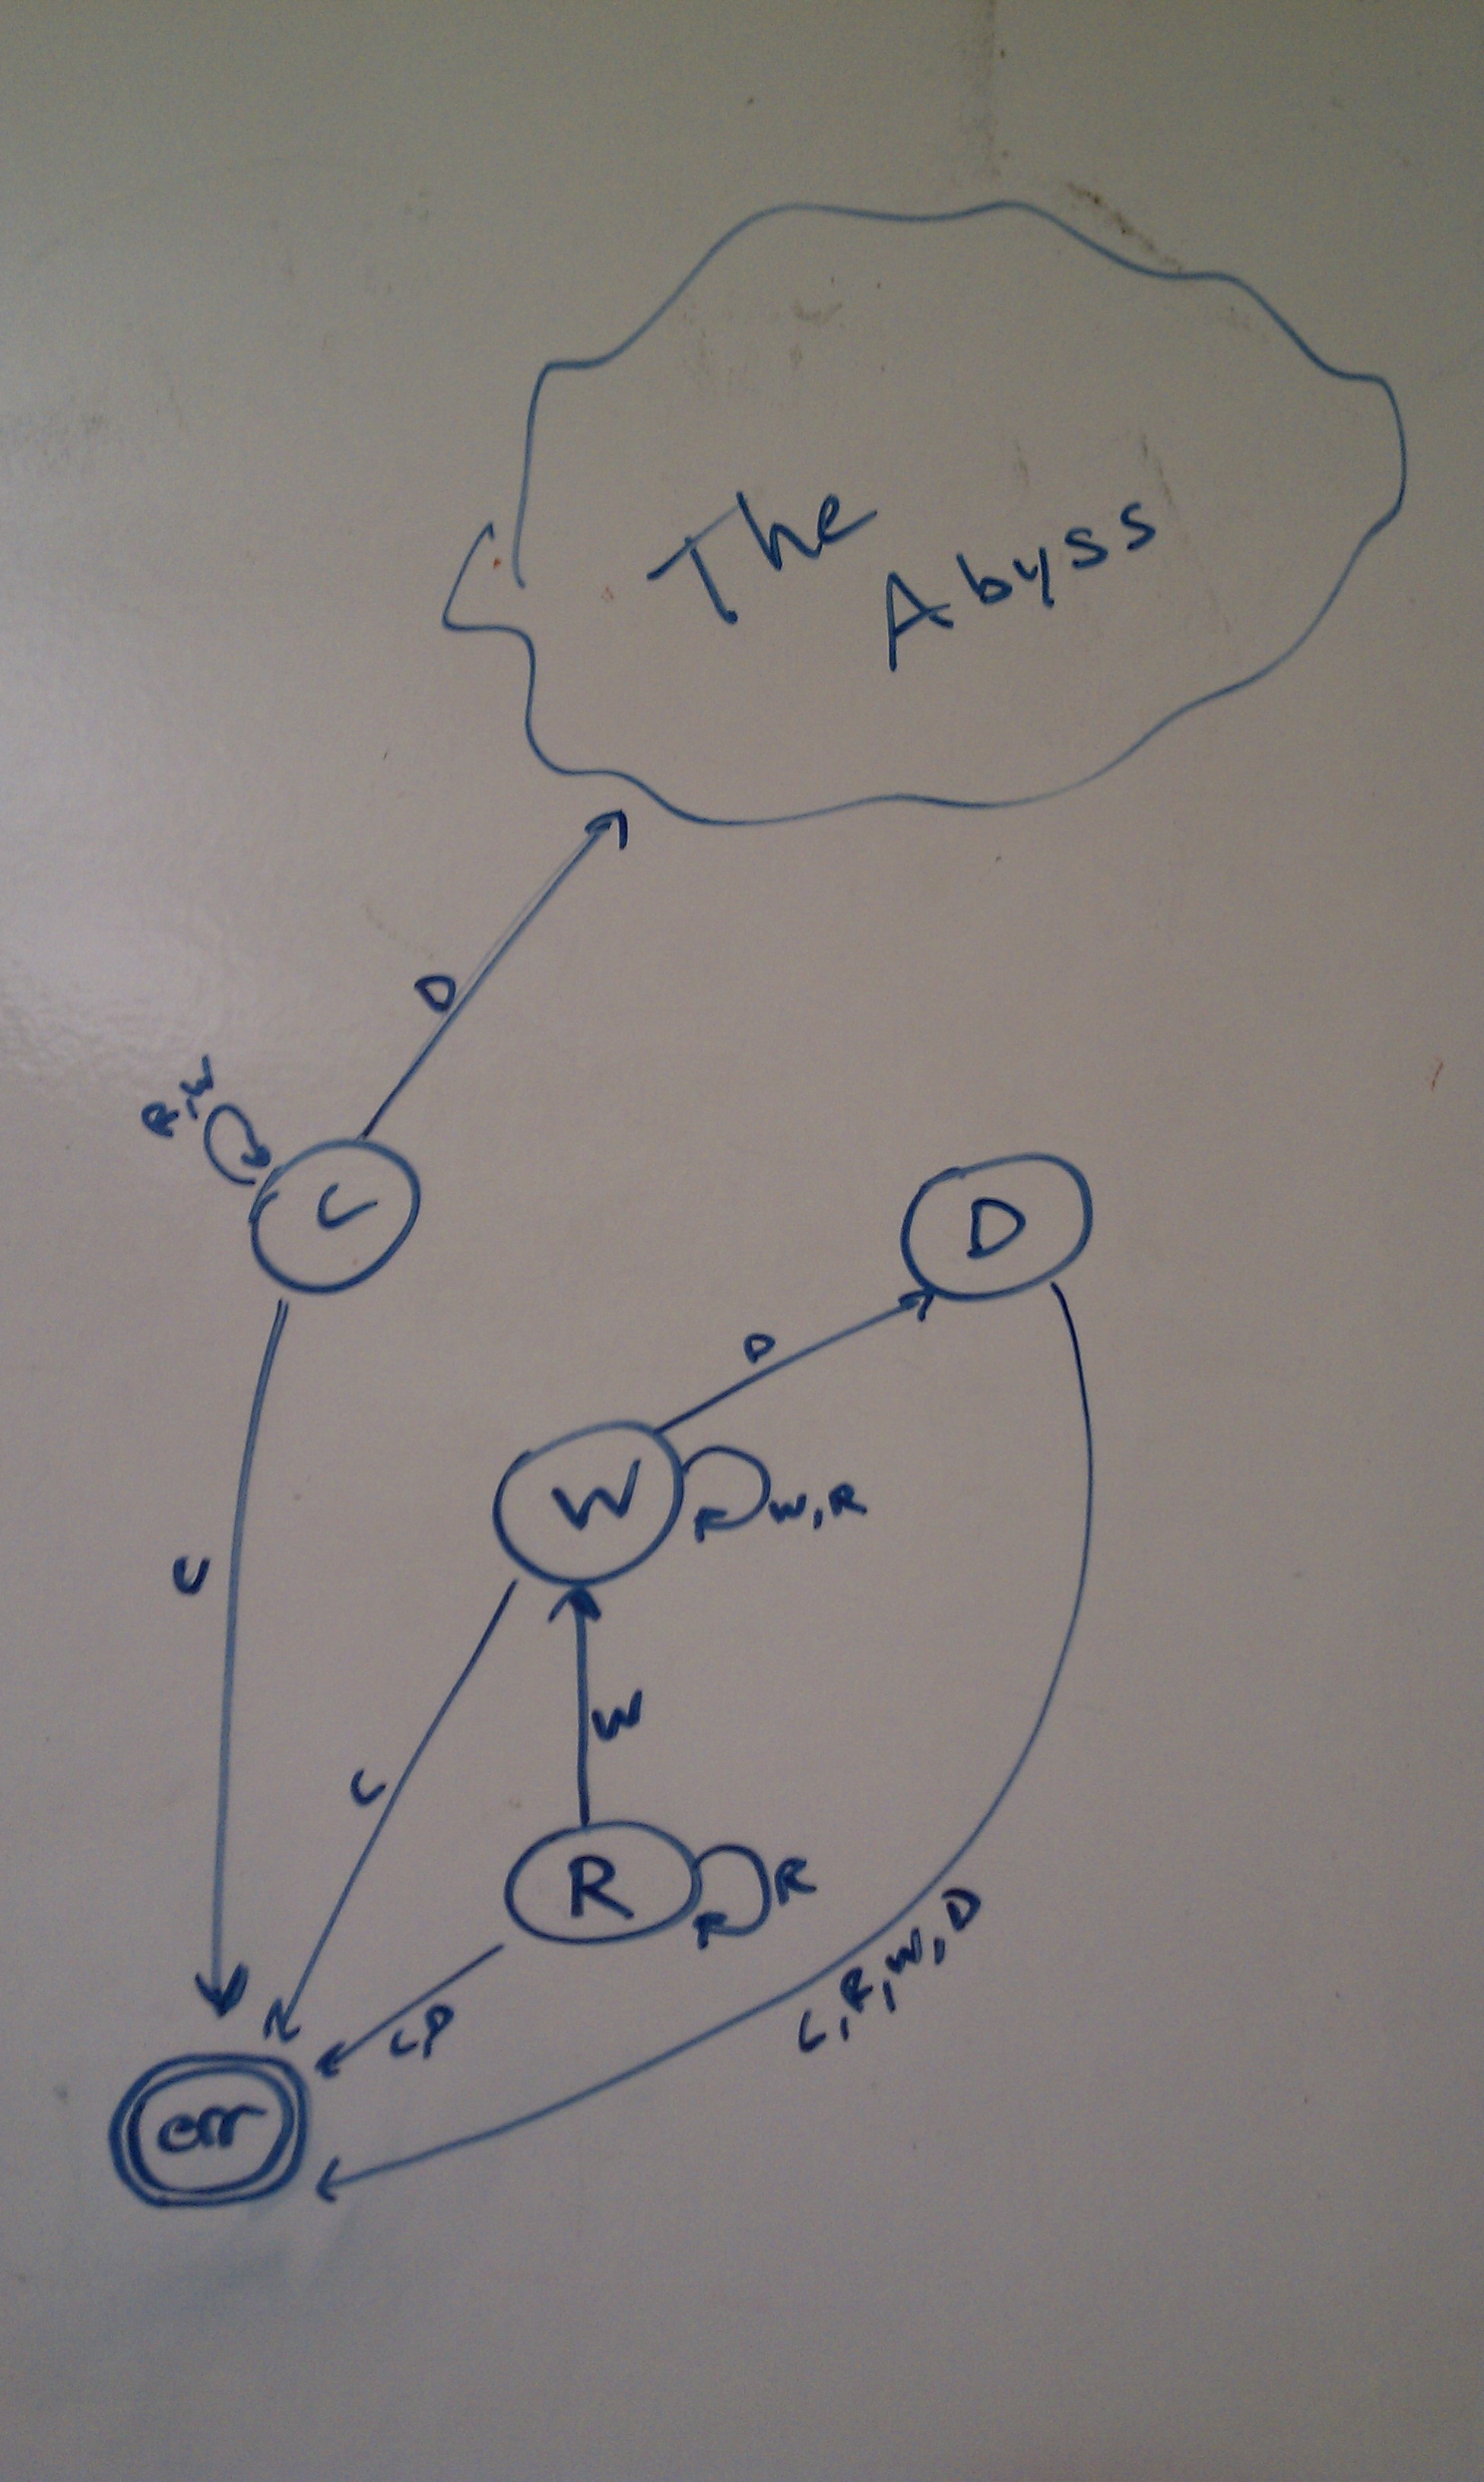 The
Abyss
D
R,W
C
D
D
W
W,R
C
C
W
R
R
C,D
C,R,W,D
err